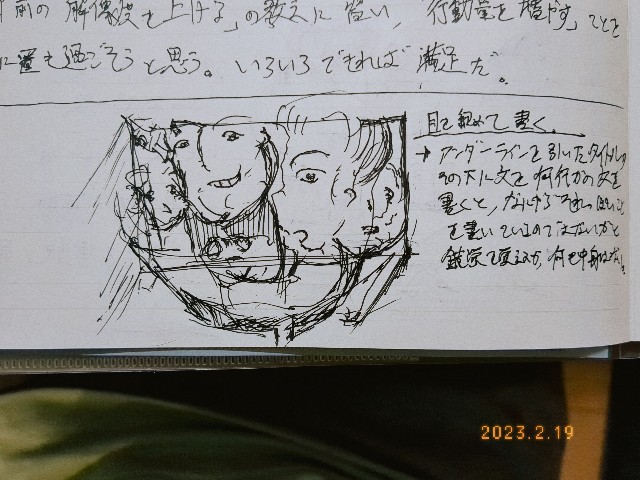 前の解像度を上げる」の教えに習い,「行動量を増やす」ことを
に重も過ごそうと思う。いろいろできれば満足だ。
目を細めて書く。
→ アンダーラインを引いたタイトル
の下に文を何行かの文を
書くと、なにげにそれっぽいこと
を書いているのではないかと
錯覚て
2023.2.19